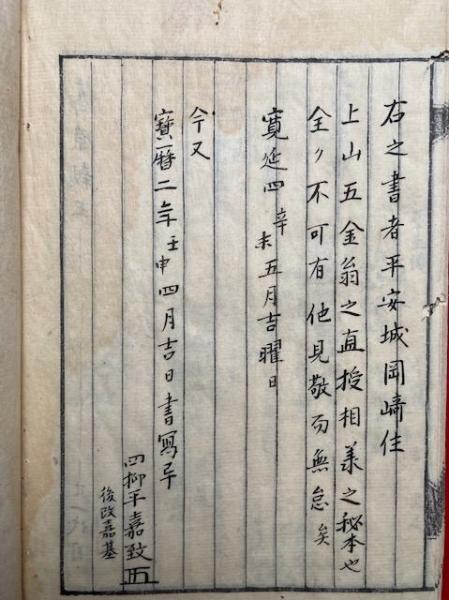 右之書者平安城岡﨑住
上山五金翁之直授相羕之秘本也
全ク不可有他見敬而無怠矣
寛延四辛未五月吉曜日
今又
寶曆二年壬申四月吉日書寫
四柳平嘉致
後改嘉基